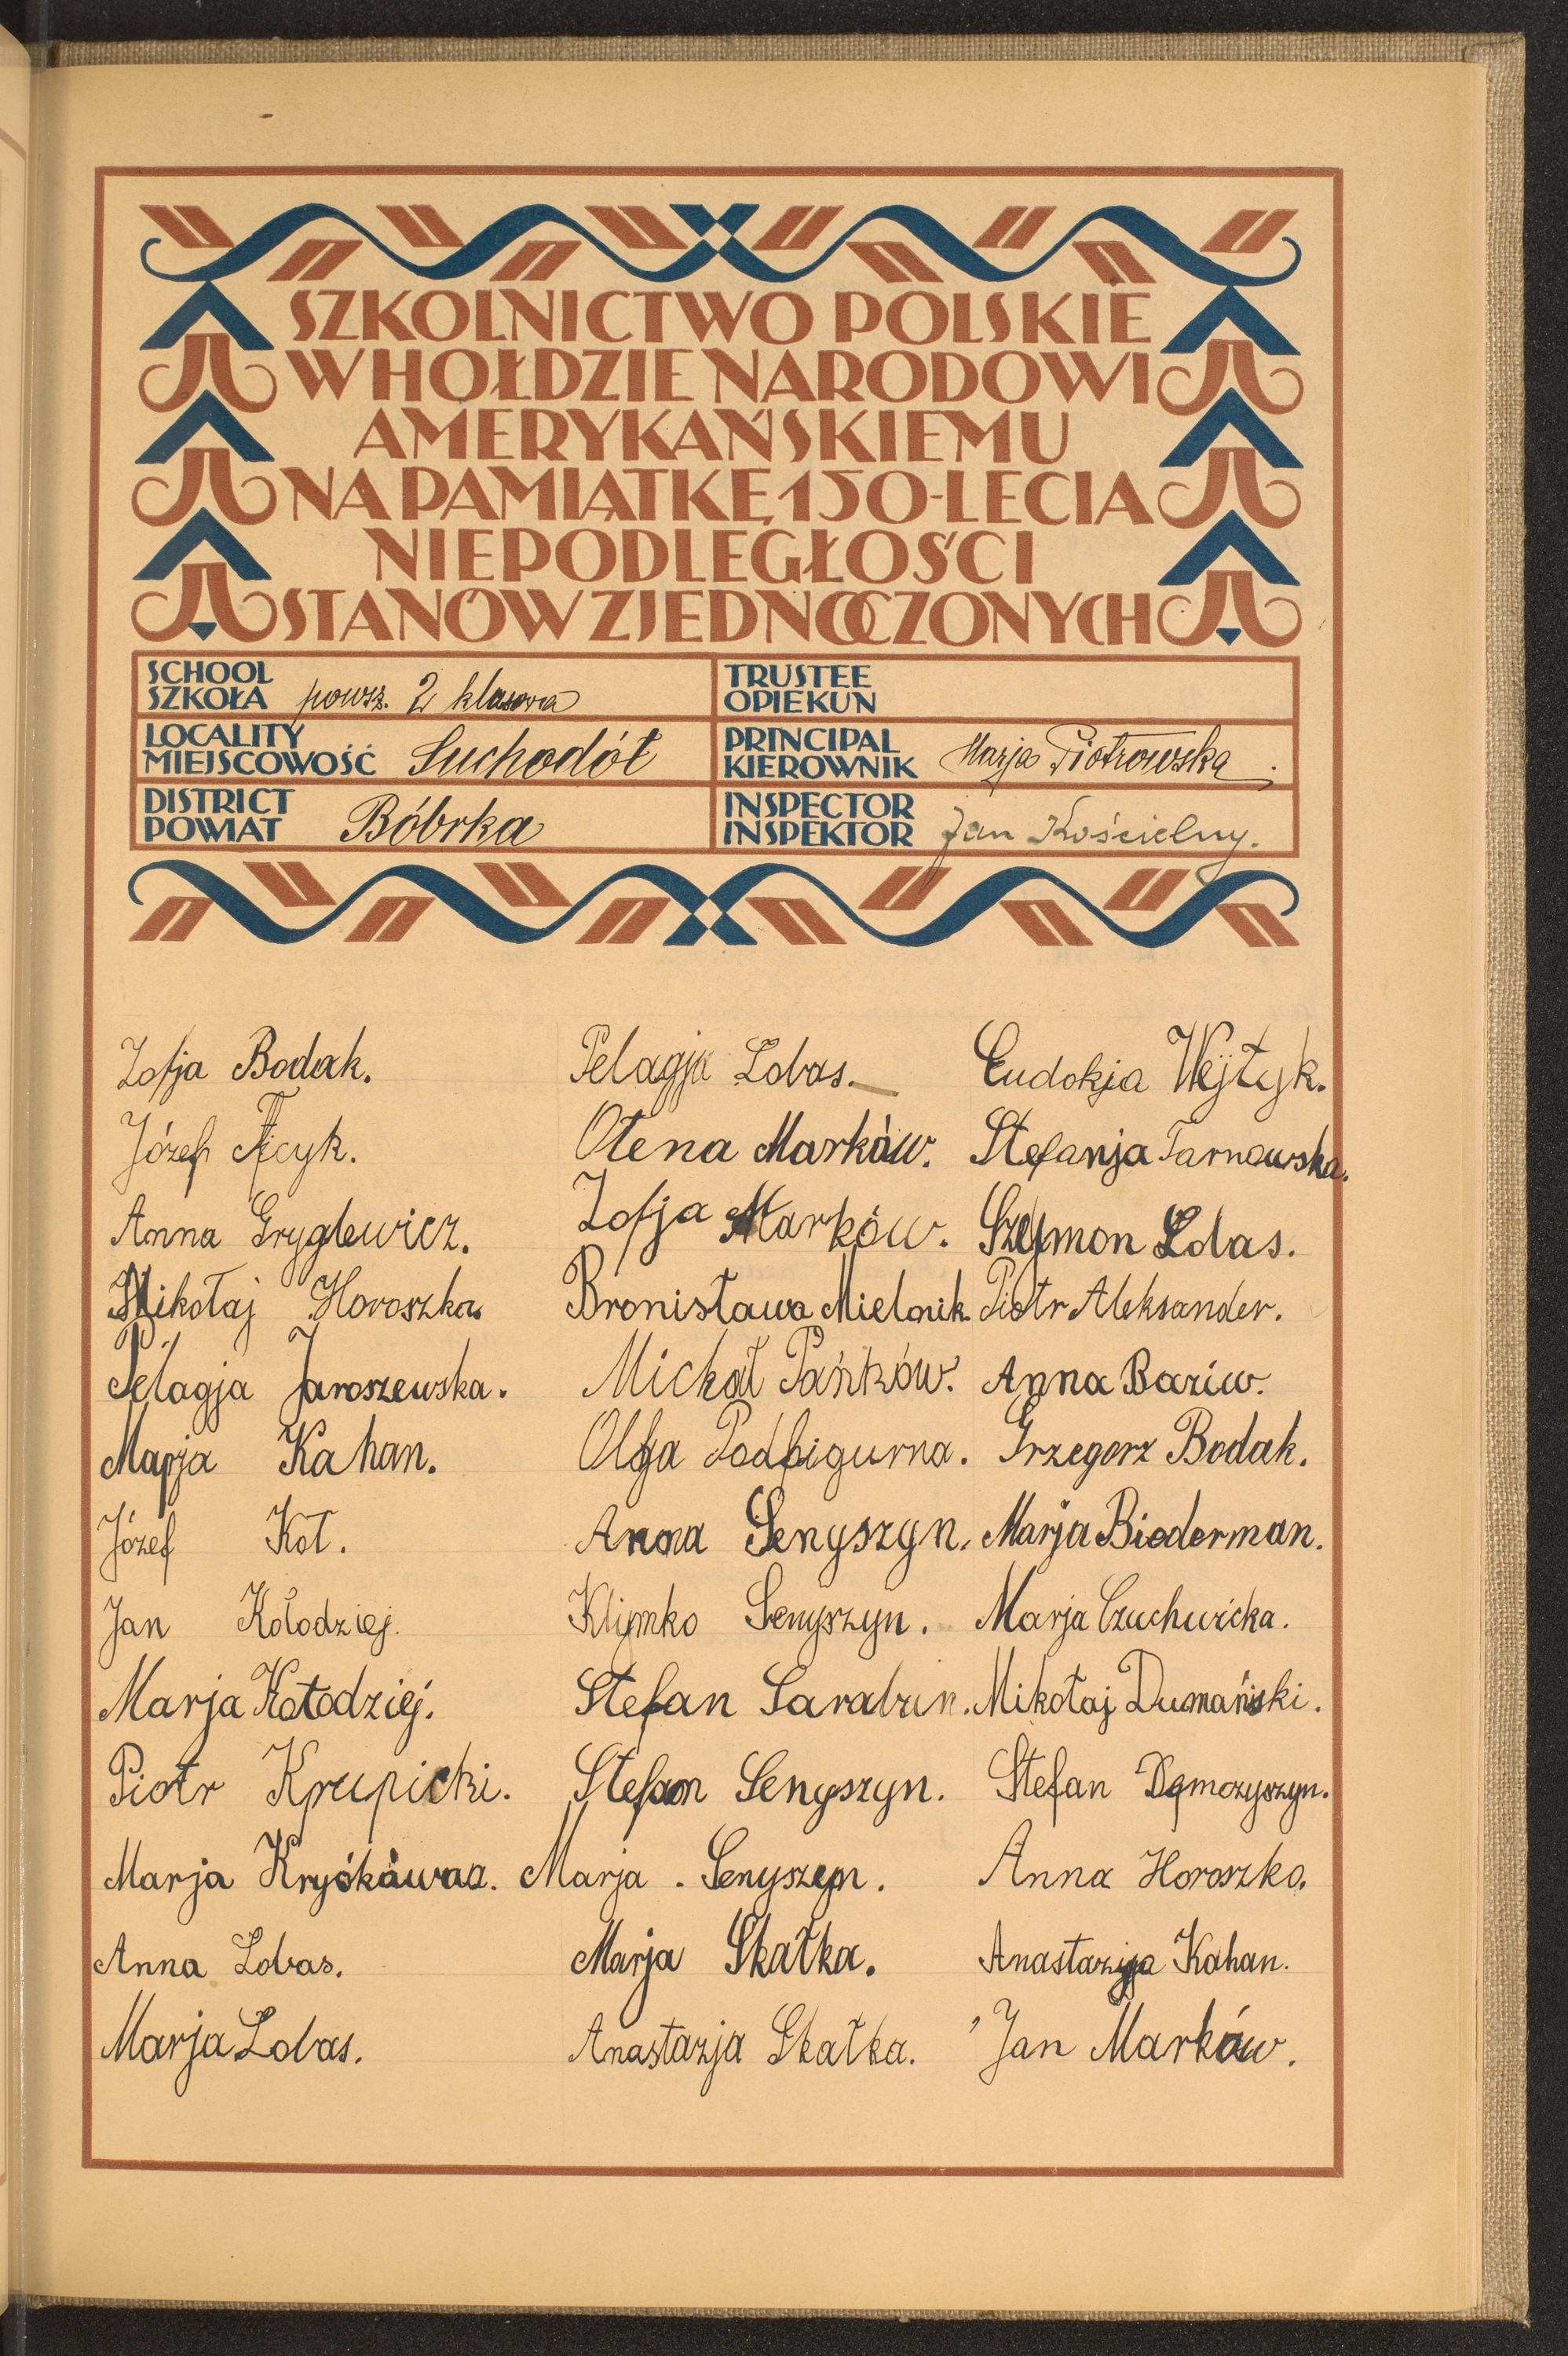 SZKOLNICTWO POLSKIE
W HOŁDZIE NARODOWI
AMERYKAŃSKIEMU
NA PAMIĄTKĘ 150-LECIA
NIEPODLEGŁOŚCI
STANÓW ZJEDNOCZONYCH
SCHOOL
SZKOŁA powsz. 2 klasowa
TRUSTEE
OPIEKUN
LOCALITY
MIEJSCOWOŚĆ Suchodół
PRINCIPAL
KIEROWNIK Marja Piotrowska.
DISTRICT
POWIAT Bóbrka
INSPECTOR
INSPEKTOR Jan Kościelny.
Zofja Bodak.
Józef
Anna Gryglewicz.
Mikołaj Horoszka.
Pelagja Jaroszewska.
Marja Kahan.
Józef Kot.
Jan Kołodziej.
Marja Kołodziej.
Piotr Krupicki.
Marja
Anna Lobas.
Marja Lobas.
Pelagja Lobas.
Ołena Marków.
Zofja Marków.
Bronisława Mielnik.
Michał Pańków.
Olga Podfigurna.
Anna Senyszyn.
Klymko Senyszyn.
Stefan Sarabun.
Stefan Senyszyn.
Marja. Senyszyn.
Marja Skałka.
Anastazja Skałka.
Eudokja Wejtyk.
Stefanja Tarnawska.
Szymon Lobas.
Piotr Aleksander.
Anna Baziw.
Grzegorz Bodak.
Marja Biederman.
Marja Czuchwicka.
Mikołaj Dumański.
Stefan
Anna Horoszko.
Anastazja Kahan.
Jan Marków.